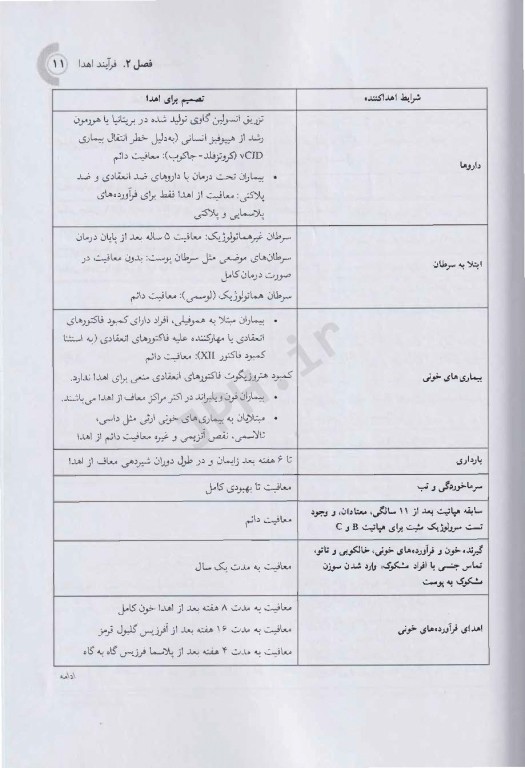 فصل ۲. فرآیند اهدا ۱۱
شرایط اهداکننده
تصمیم برای اهدا
داروها
تزریق انسولین گاوی تولید شده در بریتانیا یا هورمون
رشد از هیپوفیز انسانی (به‌دلیل خطر انتقال بیماری
vCJD (کروتزفلد-جاکوب): معافیت دائم
• بیماران تحت درمان با داروهای ضد انعقادی و ضد
پلاکتی: معافیت از اهدا فقط برای فرآورده‌های
پلاسمایی و پلاکتی
ابتلا به سرطان
سرطان غیرهماتولوژیک: معافیت ۵ ساله بعد از پایان درمان
سرطان‌های موضعی مثل سرطان پوست: بدون معافیت در
صورت درمان کامل
سرطان هماتولوژیک (لوسمی): معافیت دائم
بیماری های خونی
• بیماران مبتلا به هموفیلی، افراد دارای کمبود فاکتورهای
انعقادی یا مهارکننده علیه فاکتورهای انعقادی (به استثنا
کمبود فاکتور XII): معافیت دائم
کمبود هتروزیگوت فاکتورهای انعقادی منعی برای اهدا ندارد.
• بیماران فون ویلبراند در اکثر مراکز معاف از اهدا می‌باشند.
• مبتلایان به بیماری‌های خونی ارثی مثل داسی،
تالاسمی، نقص آنزیمی و غیره معافیت دائم از اهدا
بارداری
تا ۶ هفته بعد زایمان و در طول دوران شیردهی معاف از اهدا
سرماخوردگی و تب
معافیت تا بهبودی کامل
سابقه هپاتیت بعد از ۱۱ سالگی، معتادان، و وجود
تست سرولوژیک مثبت برای هپاتیت B و C
معافیت دائم
گیرنده خون و فرآورده‌های خونی، خالکوبی و تاتو،
تماس جنسی با افراد مشکوک، وارد شدن سوزن
مشکوک به پوست
معافیت به مدت یک سال
اهدای فرآورده‌های خونی
معافیت به مدت ۸ هفته بعد از اهدا خون کامل
معافیت به مدت ۱۶ هفته بعد از آفرزیس گلبول قرمز
معافیت به مدت ۴ هفته بعد از پلاسما فرزیس گاه به گاه
ادامه